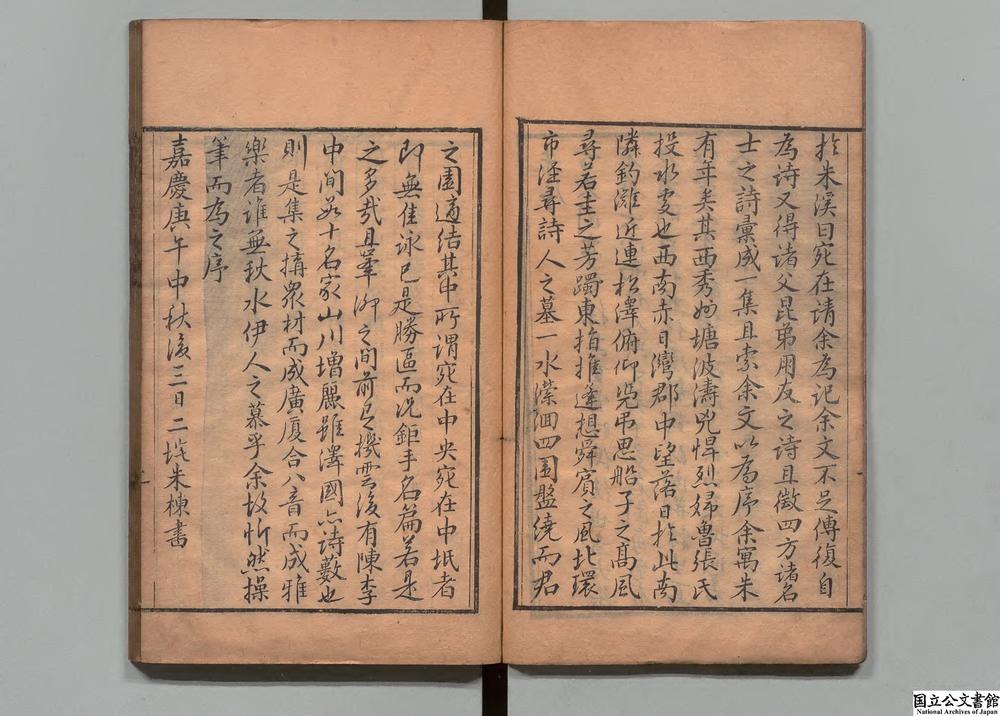 於朱溪曰宛在請余為記余文不足傳復自
為詩又得諸父昆弟朋友之詩且徵四方諸名
士之詩彙成一集且索余文以為序余寓朱
有年矣其西秀塘波濤兇悍烈婦魯張氏
投水處也西南赤日灣郡中望落日於此南
隣釣灘近連松澤俯仰憑弔思船子之高風
尋若圭之芳躅東指推逢想舜賓之風北環
市涇尋詩人之墓一水瀠洄四圍盤繞而君
之園適結其中所謂宛在中央宛在中坻者
即無佳詠已是勝區而況鉅手名篇若是
之多哉且峯泖之間前有機雲後有陳李
中間數十名家山川增麗雖澤國亦詩藪也
則是集之搆眾材而成廣廈合八音而成雅
樂者誰無秋水伊人之慕乎余故忻然操
筆而為之序
嘉慶庚午中秋後三日二垞朱棟書
国立公文書館
National Archives of Japan